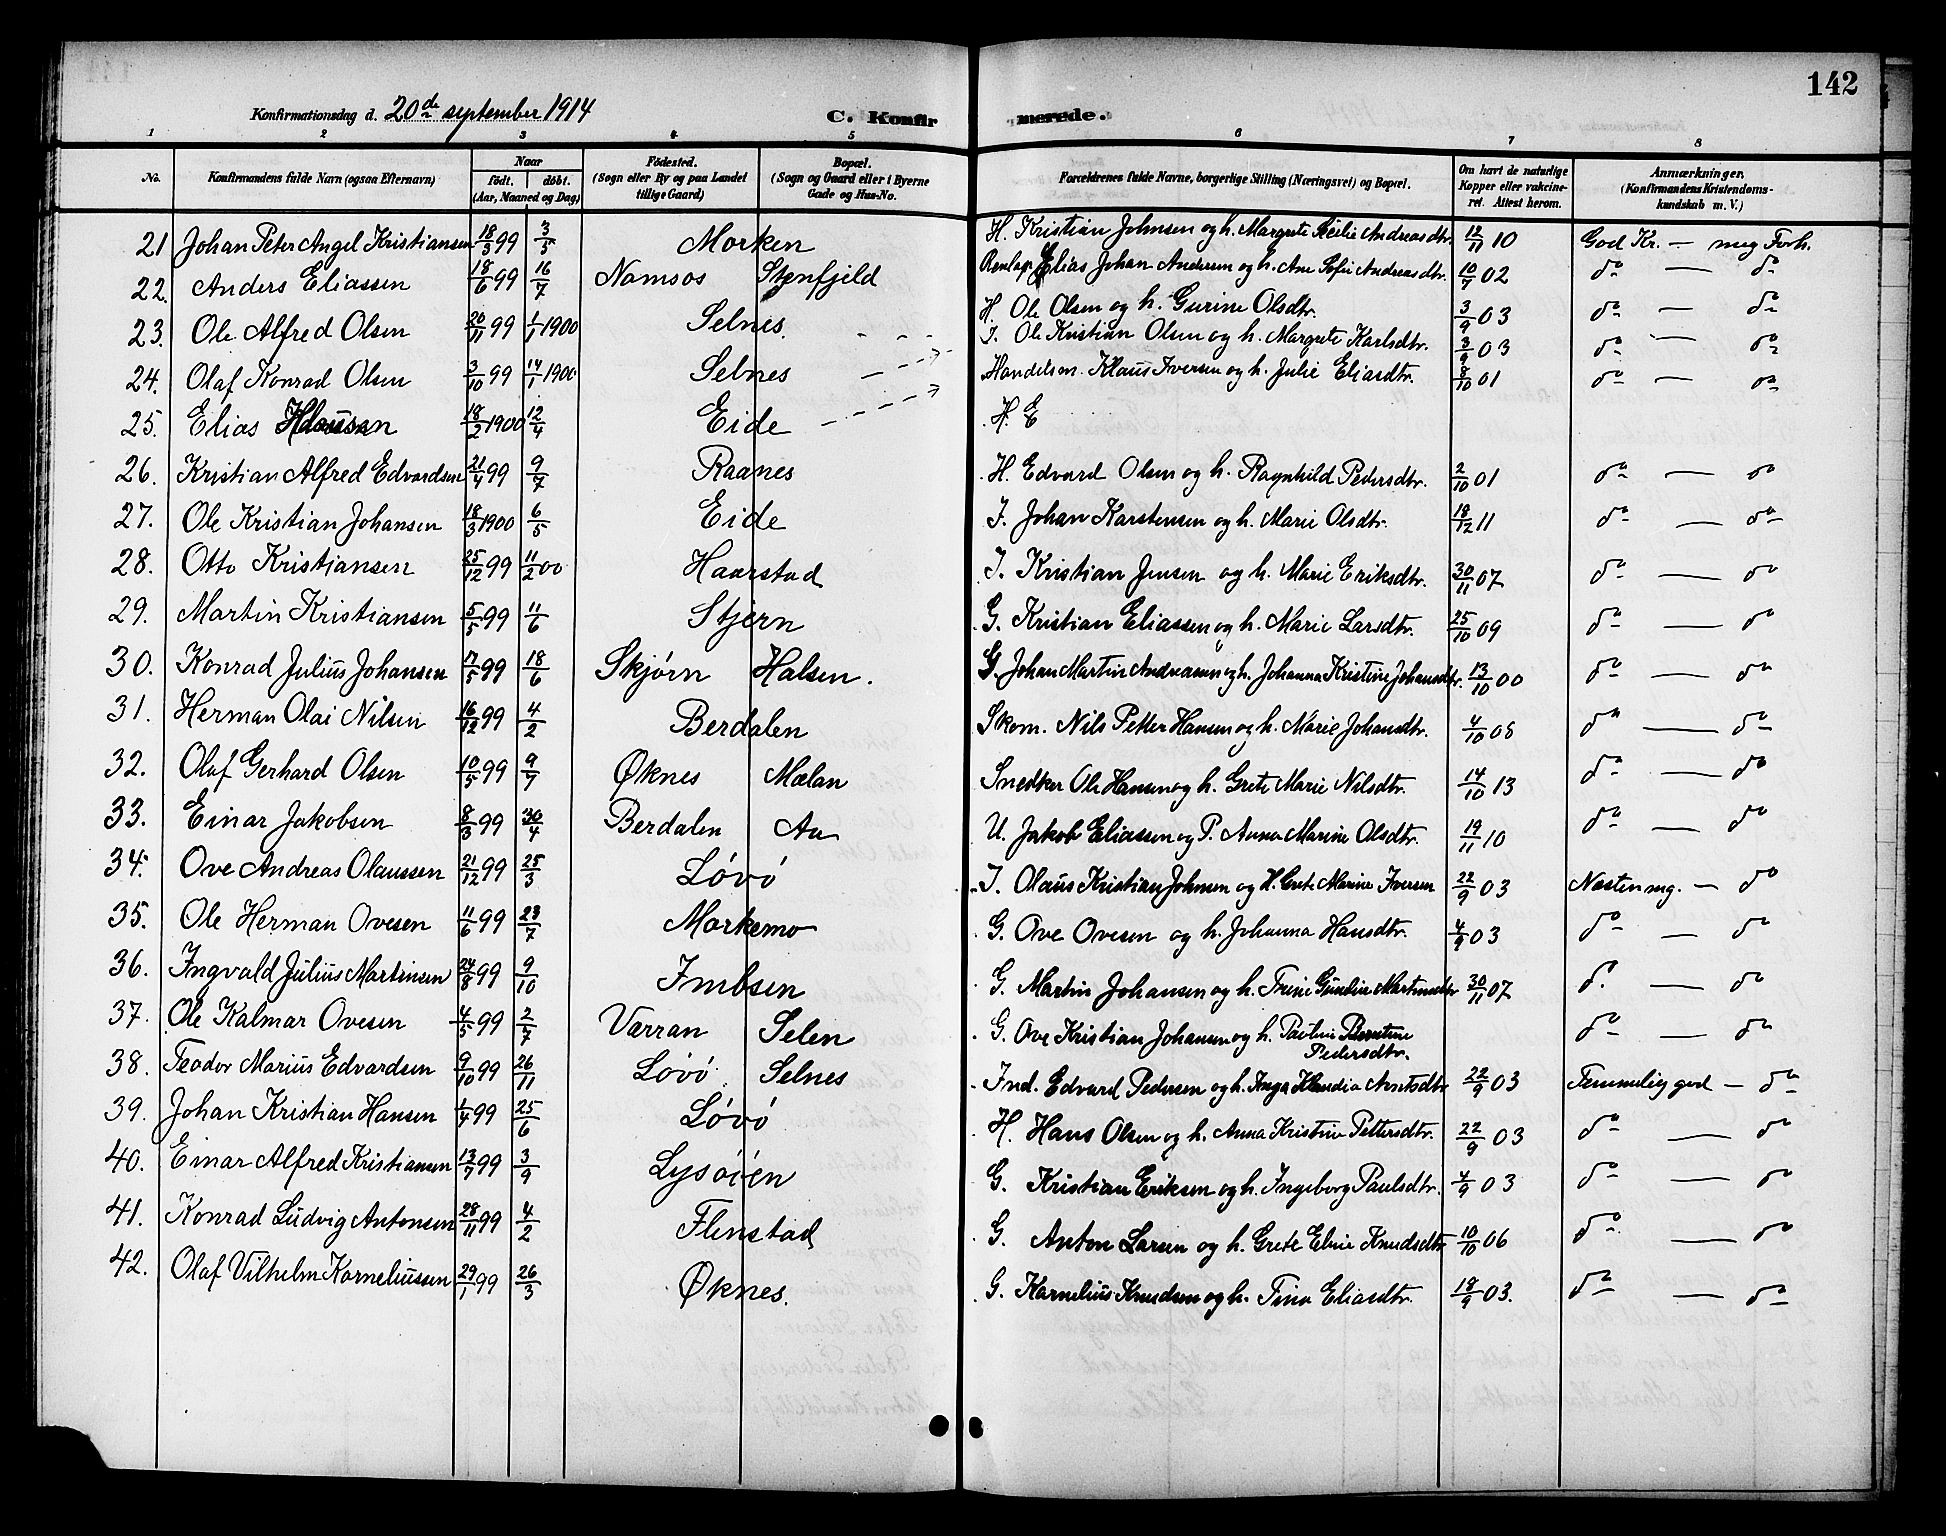 142
Konfirmationsdag d. 20de september 1914
C. Konfirmerede.
1 2 3 4 5 6 7 8
No.
Konfirmandens fulde Navn (ogsaa Efternavn)
Naar
født. døbt.
(Aar, Maaned og Dag)
Fødested.
(Sogn eller By og paa Landet
tillige Gaard)
Bopæl.
(Sogn og Gaard eller i Byerne
Gade og Hus-No.
Forældrenes fulde Navne, borgerlige Stilling (Næringsvei) og Bopæl.
Om havt de naturlige
Kopper eller vakcine-
ret. Attest herom.
Anmærkninger.
(Konfirmandens Kristendoms-
kundskab m. V.)
21 Johan Peter Angel Kristiansen 18/3 99 3/5 Morken H. Kristian Johnsen og h. Margrete Sicilie Andreasdtr. 12/11 10 God Kr. — meg Forh.
22. Anders Eliassen 18/6 99 16/7 Namsos Stenfjeld Elias Johan Andersen og h. Ane Sofie Andreasdtr. 10/7 02 do — do
23. Ole Alfred Olsen 20/11 99 1/1 1900 Selnes. H. Ole Olsen og h. Gurine Olsdtr. 3/9 03 do — do
24. Olaf Konrad Olsen 3/10 99 14/1 1900 Selnes I. Ole Kristian Olsen og h. Margrete Karlsdtr. 3/9 03 do — do
25. Elias Klausen 18/2 1900 12/4 Eide Handelsm. Klaus Iversen og h. Julie Eliasdtr. 8/10 01 do — do
H. E
26. Kristian Alfred Edvardsen 21/4 99 9/7 Raanes H. Edvard Olsen og h. Ragnhild Pedersdtr. 2/10 01 do — do
27. Ole Kristian Johansen 18/3 1900 6/5 Eide I. Johan Karstensen og h. Marie Olsdtr. 18/12 11 do — do
28. Otto Kristiansen 25/12 99 11/2 00 Haarstad I. Kristian Jensen og h. Marie Eriksdtr. 30/11 07 do — do
29. Martin Kristiansen 5/5 99 11/6 Stjern G. Kristian Eliassen og h. Marie Larsdtr. 25/10 09 do — do
30. Konrad Julius Johansen 17/5 99 18/6 Skjørn Halsen. G. Johan Martin Andreasen og h. Johanna Kristine Johansdtr. 13/10 00 do — do
31. Herman Olai Nilsen 16/12 99 4/2 Berdalen Skom. Nils Petter Hansen og h. Marie Johansdtr. 4/10 05 do — do
32. Olaf Gerhard Olsen 10/5 99 9/7 Øknes Mælan Snedker Ole Hansen og h. Grete Marie Nilsdtr. 14/10 13 do — do
33. Einar Jakobsen 8/3 99 30/4 Berdalen Aa U. Jakob Eliassen og P. Anna Marine Olsdtr. 19/11 10 do — do
34. Ove Andreas Olaussen 21/12 99 25/3 Løvø I. Olaus Kristian Johnsen og H. Grete Marine Iversen 22/9 03 Næsten mg. — do
35. Ole Herman Ovesen 11/6 99 23/7 Morkemo G. Ove Ovesen og h. Johanna Hansdtr. 4/9 03 do — do
36. Ingvald Julius Martinsen 24/8 99 9/10 Imbsen G. Martin Johansen og h. Trine Gundine Martinsdtr 30/11 07 do — do
37. Ole Kalmar Ovesen 4/5 99 2/7 Varran Selen G. Ove Kristian Johansen og h. Paoline
Pedersdtr. do — do
38. Teodor Marius Edvardsen 9/10 99 26/11 Løvø Selnes Ind. Edvard Pedersen og h. Inga Klaudia Arntsdtr 22/9 03 Temmelig god — do
39. Johan Kristian Hansen 1/4 99 25/6 Løvø H. Hans Olsen og h. Anna Kristine Pettersdtr. 22/9 03 do — do
40. Einar Alfred Kristiansen 13/7 99 3/9 Lysøien G. Kristian Eriksen og h. Ingeborg Paulsdtr. 4/9 03 do — do
41. Konrad Ludvig Antonsen 28/11 99 4/2 Flenstad G. Anton Larsen og h. Grete Eline Knudsdtr 10/10 06 do — do
42. Olaf Vilhelm Korneliussen 29/1 99 26/3 Øknes. G. Kornelius Knudsen og h. Tina Eliasdtr. 18/9 03. do — do